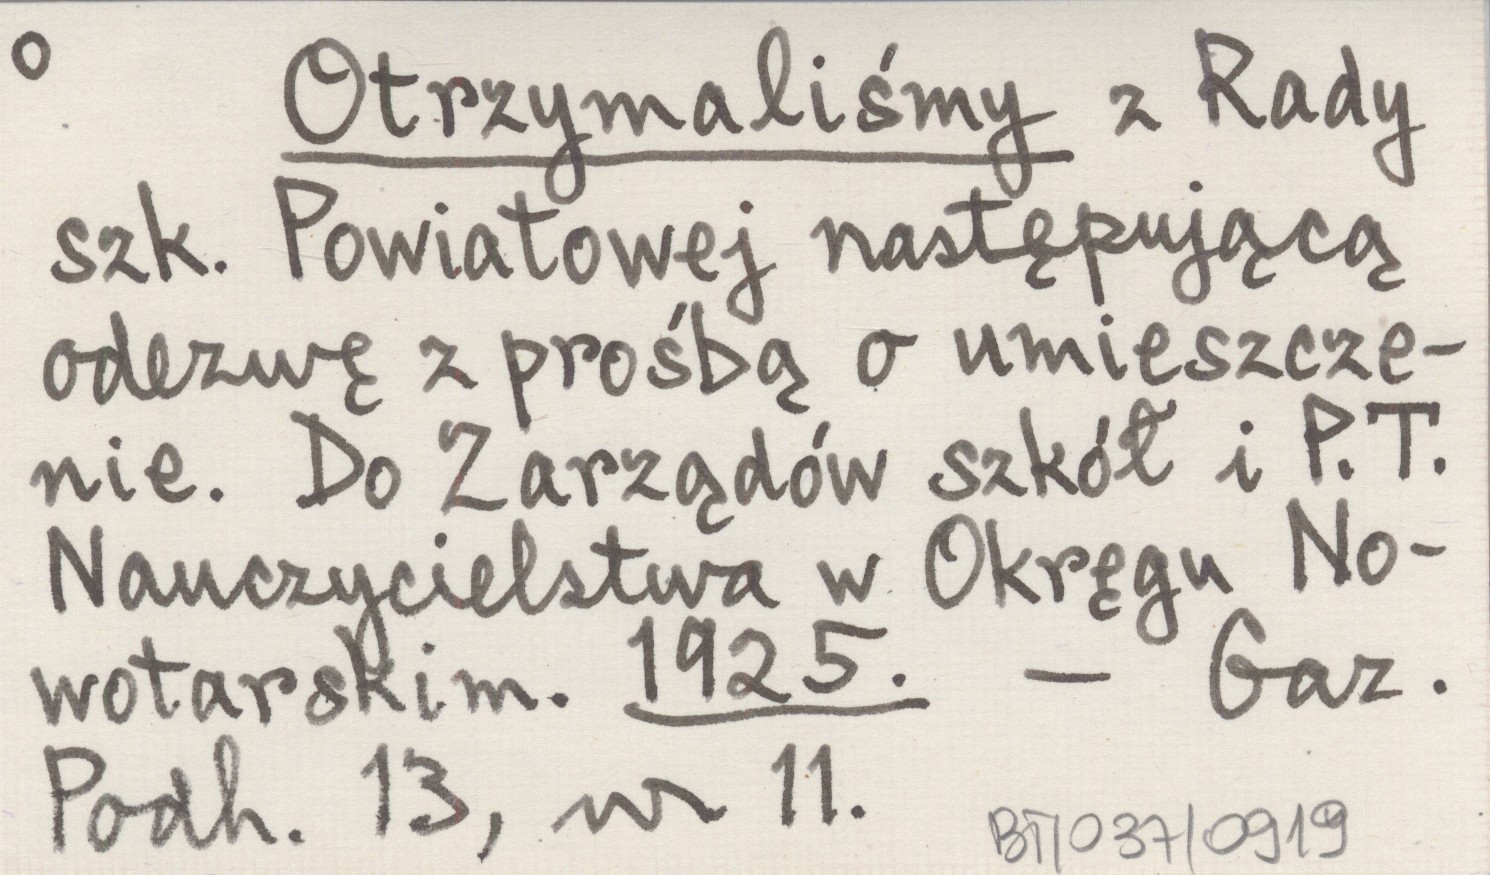 o Otrzymaliśmy z Rady
szk. Powiatowej następującą
odezwę z prośbą o umieszcze-
nie. Do Zarządów szkół i P.T.
Nauczycielstwa w Okręgu No-
wotarskim. 1925. — Gaz.
Podh. 13, nr 11.
BT/037/0919